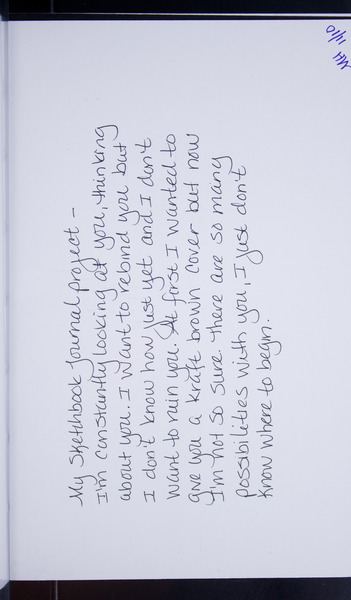 My Sketchbook Journal project –
I'm constantly looking at you, thinking
about you. I want to rebind you but
I don't know how just yet and I don't
want to ruin you. At first I wanted to
give you a kraft brown cover but now
I'm not so sure. There are so many
possibilities with you, I just don't
know where to begin.
MH
11/10